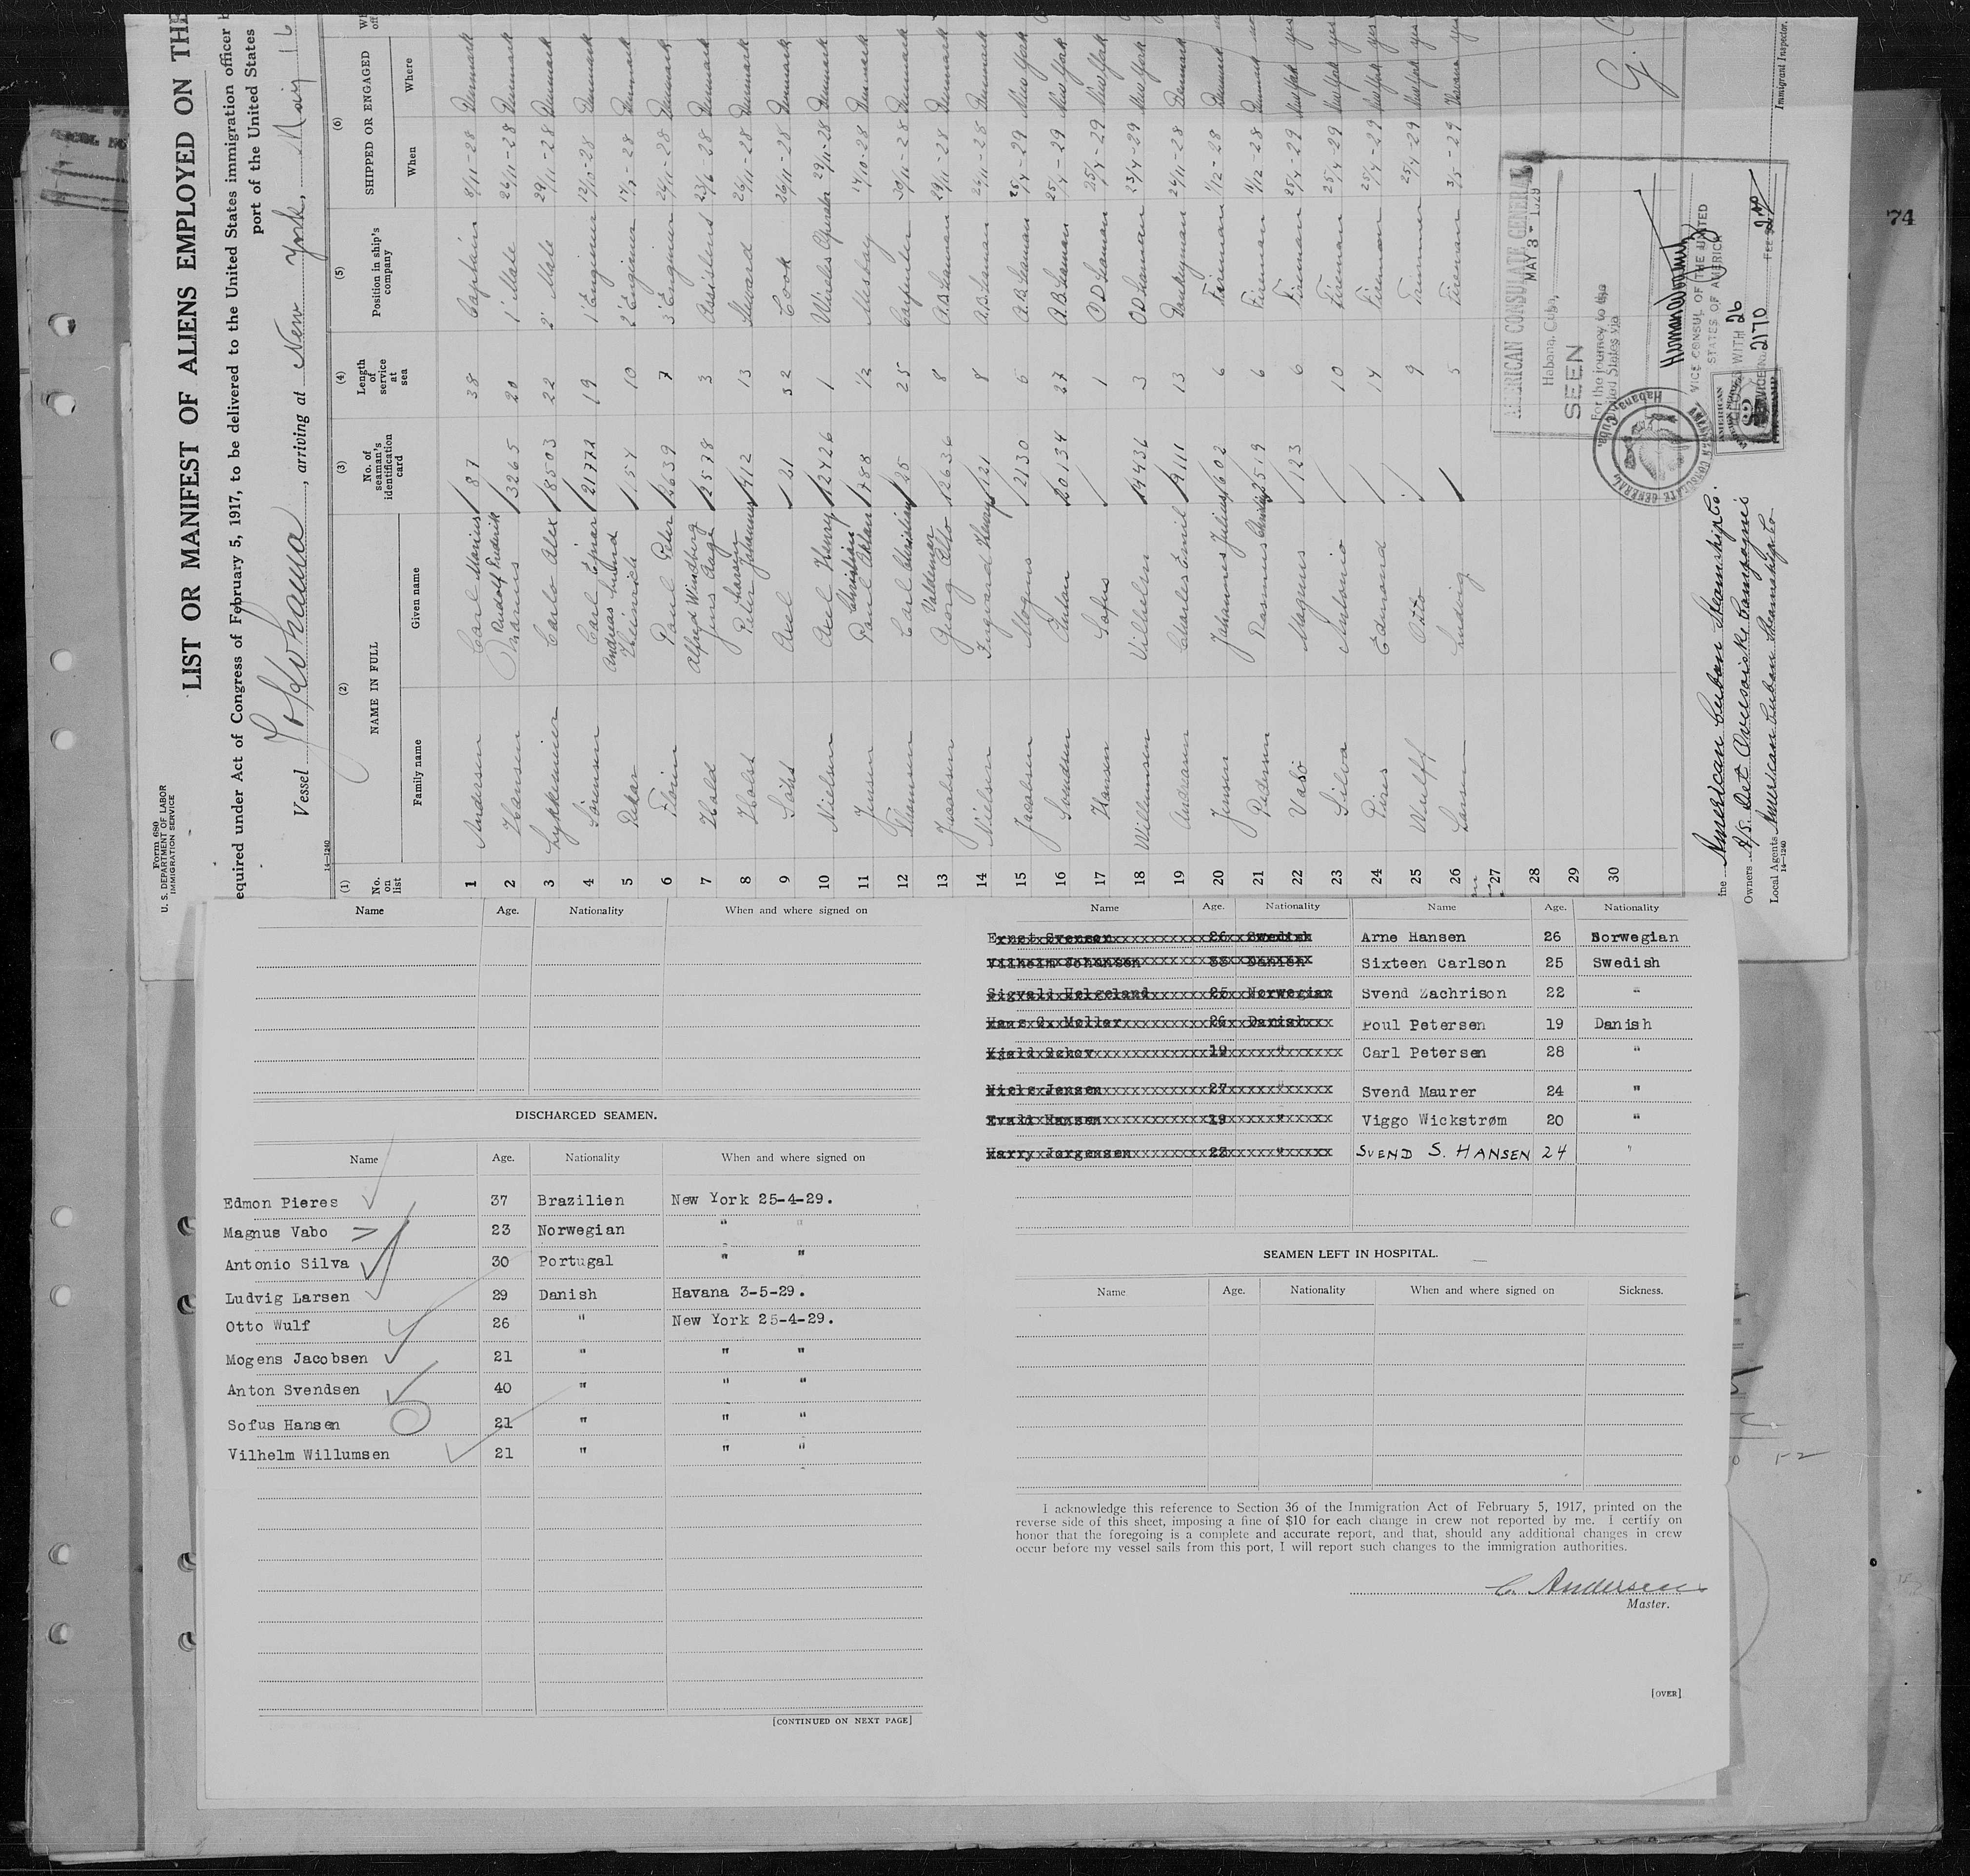 Form 680
U. S. DEPARTMENT OF LABOR
IMMIGRATION SERVICE
LIST OR MANIFEST OF ALIENS EMPLOYED ON THE
equired under Act of Congress of February 5, 1917, to be delivered to the United States immigration officer
port of the United States
Vessel , arriving at New York, May 16
14—1240
(1) (2) (3) (4) (5) (6)
No. on list NAME IN FULL No. of seaman's identification card Length of service at sea Position in ship's company SHIPPED OR ENGAGED
Family name Given name When Where
1 Andersen Carl Marius 87 38 Captain 8/11-28 Denmark
2 Hansen Rudolf Frederik 3265 20 1' Mate 26/11-28 Denmark
3 Lykkemeier Carlo Alex 8503 22 2' Mate 29/11-28 Denmark
4 Carl Ejnar 21772 19 1' Engineer 12/10-28 Denmark
5 Heinrich 154 10 2' Engineer 28 Denmark
6 Poul Peter 2639 7 3' Engineer 24/11-28 Denmark
7 Hald Alfred Windberg Jens Aage 2578 3 Assistent 23/6-28 Denmark
8 Holst Peter Johannes 912 13 Steward 26/11-28 Denmark
9 Axel 21 32 Cook 26/11-28 Denmark
10 Nielsen Axel Henry 12426 1 29/11-28 Denmark
11 Jensen Christian Poul 788 1/2 Messboy 17/10-28 Denmark
12 Carl Christian 25 25 Carpenter 30/11-28 Denmark
13 Valdemar Georg Otto 12636 8 A.B. Seaman 29/11-28 Denmark
14 Nielsen Ingvard Henry 121 8 A.B. Seaman 26/11-28 Denmark
15 Mogens 2130 5 A.B. Seaman 25/4-29 New York
16 Svendsen Anton 20134 27 A.B. Seaman 25/4-29 New York
17 Hansen Sofus 1 O.D. Seaman 25/4-29 New York
18 Willumsen Vilhelm 19436 3 O.D. Seaman 23/4-29 New York
19 Andersen Charles Emil 9111 13 Donkeyman 24/11-28 Denmark
20 Jensen Johannes Julius 602 6 Fireman 1/12-28 Denmark
21 Pedersen Rasmus 2519 6 Fireman 1/12-28 Denmark
22 Vabo Magnus 123 6 Fireman 25/4-29 New York yes
23 Silva Antonio 10 Fireman 25/4-29 New York yes
24 Pires Edmond 14 Fireman 25/4-29 New York yes
25 Wulff Otto 9 Trimmer 25/4-29 New York yes
26 Larsen Ludvig 5 Fireman 3/5-29 Havana yes
27
28
29
30
AMERICAN CONSULATE GENERAL
MAY 3 - 1929
Habana, Cuba,
SEEN
For the journey to the
United States via
VICE CONSUL OF THE UNITED
STATES OF AMERICA
2170
ine American Cuban Steamship Co.
Owners A/S. Det Oversøiske Compagnie
Local Agents American Cuban Steamship Co
14—1240
Immigrant Inspector.
74
Name Age. Nationality When and where signed on
DISCHARGED SEAMEN.
Name Age. Nationality When and where signed on
Edmon Pieres 37 Brazilien New York 25-4-29.
Magnus Vabo 23 Norwegian " "
Antonio Silva 30 Portugal " "
Ludvig Larsen 29 Danish Havana 3-5-29.
Otto Wulf 26 " New York 25-4-29.
Mogens Jacobsen 21 " " "
Anton Svendsen 40 " " "
Sofus Hansen 21 " " "
Vilhelm Willumsen 21 " " "
[CONTINUED ON NEXT PAGE]
Name Age. Nationality Name Age. Nationality
Ernst Svensen 26 Swedish Arne Hansen 26 Norwegian
Vilhelm Johansen 33 Danish Sixteen Carlson 25 Swedish
Sigvald Helgeland 25 Norwegian Svend Zachrison 22 "
Hans C. Moller 26 Danish Poul Petersen 19 Danish
Kjeld Schov 19 " Carl Petersen 28 "
Niels Jensen 27 " Svend Maurer 24 "
Evald Hansen 19 " Viggo Wickstrøm 20 "
Harry Jorgensen 22 " SVEND S. HANSEN 24 "
SEAMEN LEFT IN HOSPITAL.
Name Age. Nationality When and where signed on Sickness.
I acknowledge this reference to Section 36 of the Immigration Act of February 5, 1917, printed on the
reverse side of this sheet, imposing a fine of $10 for each change in crew not reported by me. I certify on
honor that the foregoing is a complete and accurate report, and that, should any additional changes in crew
occur before my vessel sails from this port, I will report such changes to the immigration authorities.
C. Andersen
Master.
[OVER]